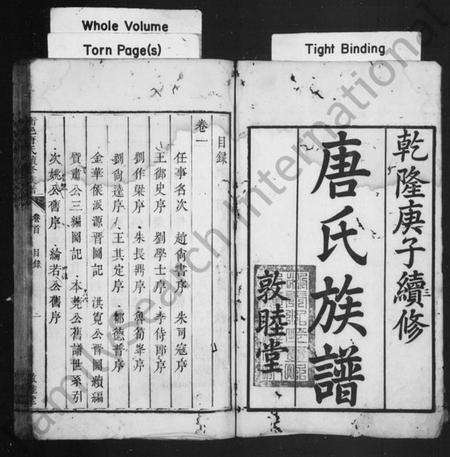 Whole Volume
Torn Page(s)
Tight Binding
familysearch international
乾隆庚子續修
唐氏族譜
敦睦堂
目録
卷一
任事名次 趙尚書序 朱司寇序
王御史序 劉學士序 李侍郎序
劉作梁序 朱長興序 魯荀峯序
劉遠序 王其定序 鄒德晋序
金華儀派源晋圖記 洪寬公晋圖續編
賀肅公三編圖記 本公舊譜世系引
次姚公舊序 綸若公舊序
卷首 目録